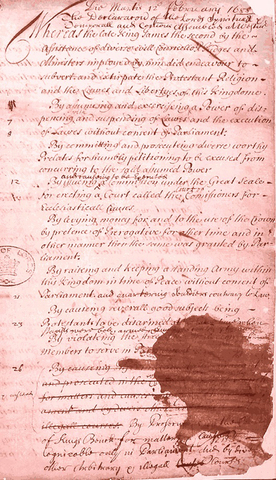 Die Martis 12 February 1688
The Declaration of the Lords Spirituall
Temporall and Commons Assembled at Westm
Whereas the late King James the second by the
assistance of diverse evill Councellors Judges and
Ministers imployed by him did endeavour to
subvert and extirpate the Protestant Religion
and the Lawes and Liberties of this Kingdome.
By assuming and exercising a Power of dis-
pencing and suspending of Lawes and the execution
of Lawes without consent of Parliament;
By committing and prosecuting diverse worthy
Prelates for humbly petitioning to be excused from
concurring to the said assumed Power
12 By issueing a Commission under the Great Seale
for erecting a Court called the Commissioners for
Ecclesiasticall Causes
By levying money for and to the use of the Crown
by pretence of Prerogative for other time and in
other manner then the same was granted by Parlia-
ment;
By raiseing and keeping a standing Army within
this Kingdom in time of Peace without consent of
Parliament and quartering souldiers contrary to Law
By causing severall good subjects being
23 Protestants to be disarmed
By violating the
Members to serve in Par
26 By causing
and prosecuted in the
for matters and causes
By Prosec
of Kings Bench for matters
cognizable only in Parliament and by
other Arbitrary & illegall Courses